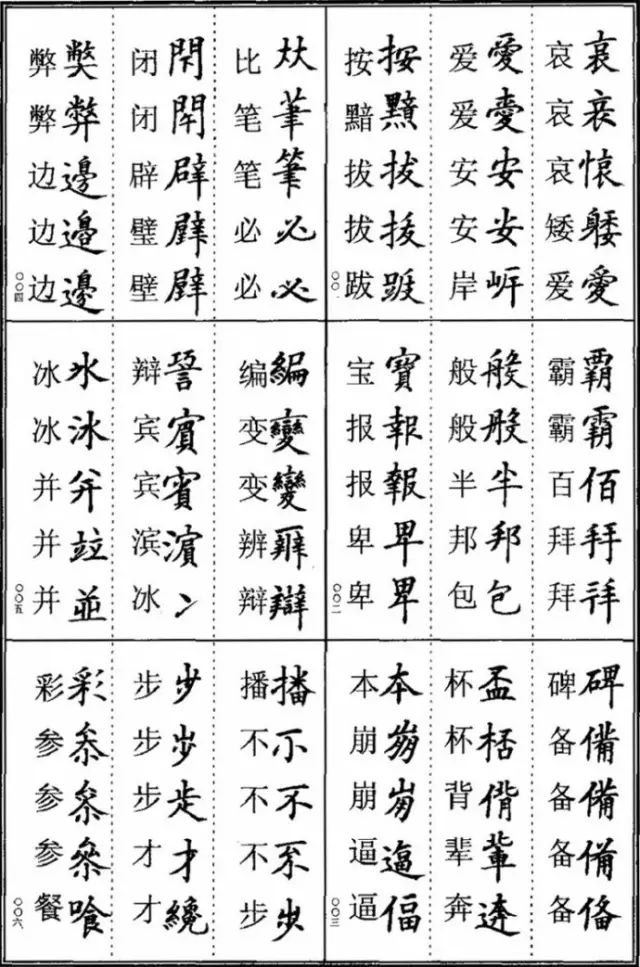 哀哀
哀哀
哀懷
矮躷
爱愛
爱愛
爱愛
安安
安安
岸岍
按按
黯黯
拔拔
拔拔
跋跋
〇〇一
霸覇
霸霸
百佰
拜拜
拜拜
般般
般般
半半
邦邦
包包
宝寶
报報
报報
卑卑
卑卑
〇〇二
碑碑
备備
备備
备備
备俻
杯盃
杯桮
背偝
辈輩
奔逩
本本
崩崩
崩崩
逼逼
逼偪
〇〇三
比夶
笔茟
笔筆
必必
必必
闭閇
闭閈
辟辟
璧璧
壁壁
弊弊
弊弊
边邊
边邊
边邊
〇〇四
编編
变變
变變
辨辨
辩辯
辩辩
宾賔
宾賓
滨濵
冰冫
冰氷
冰冰
并并
并竝
并並
〇〇五
播播
不不
不不
不不
步步
步步
步步
步步
才才
才纔
彩彩
参叅
参叅
参叅
餐飡
〇〇六